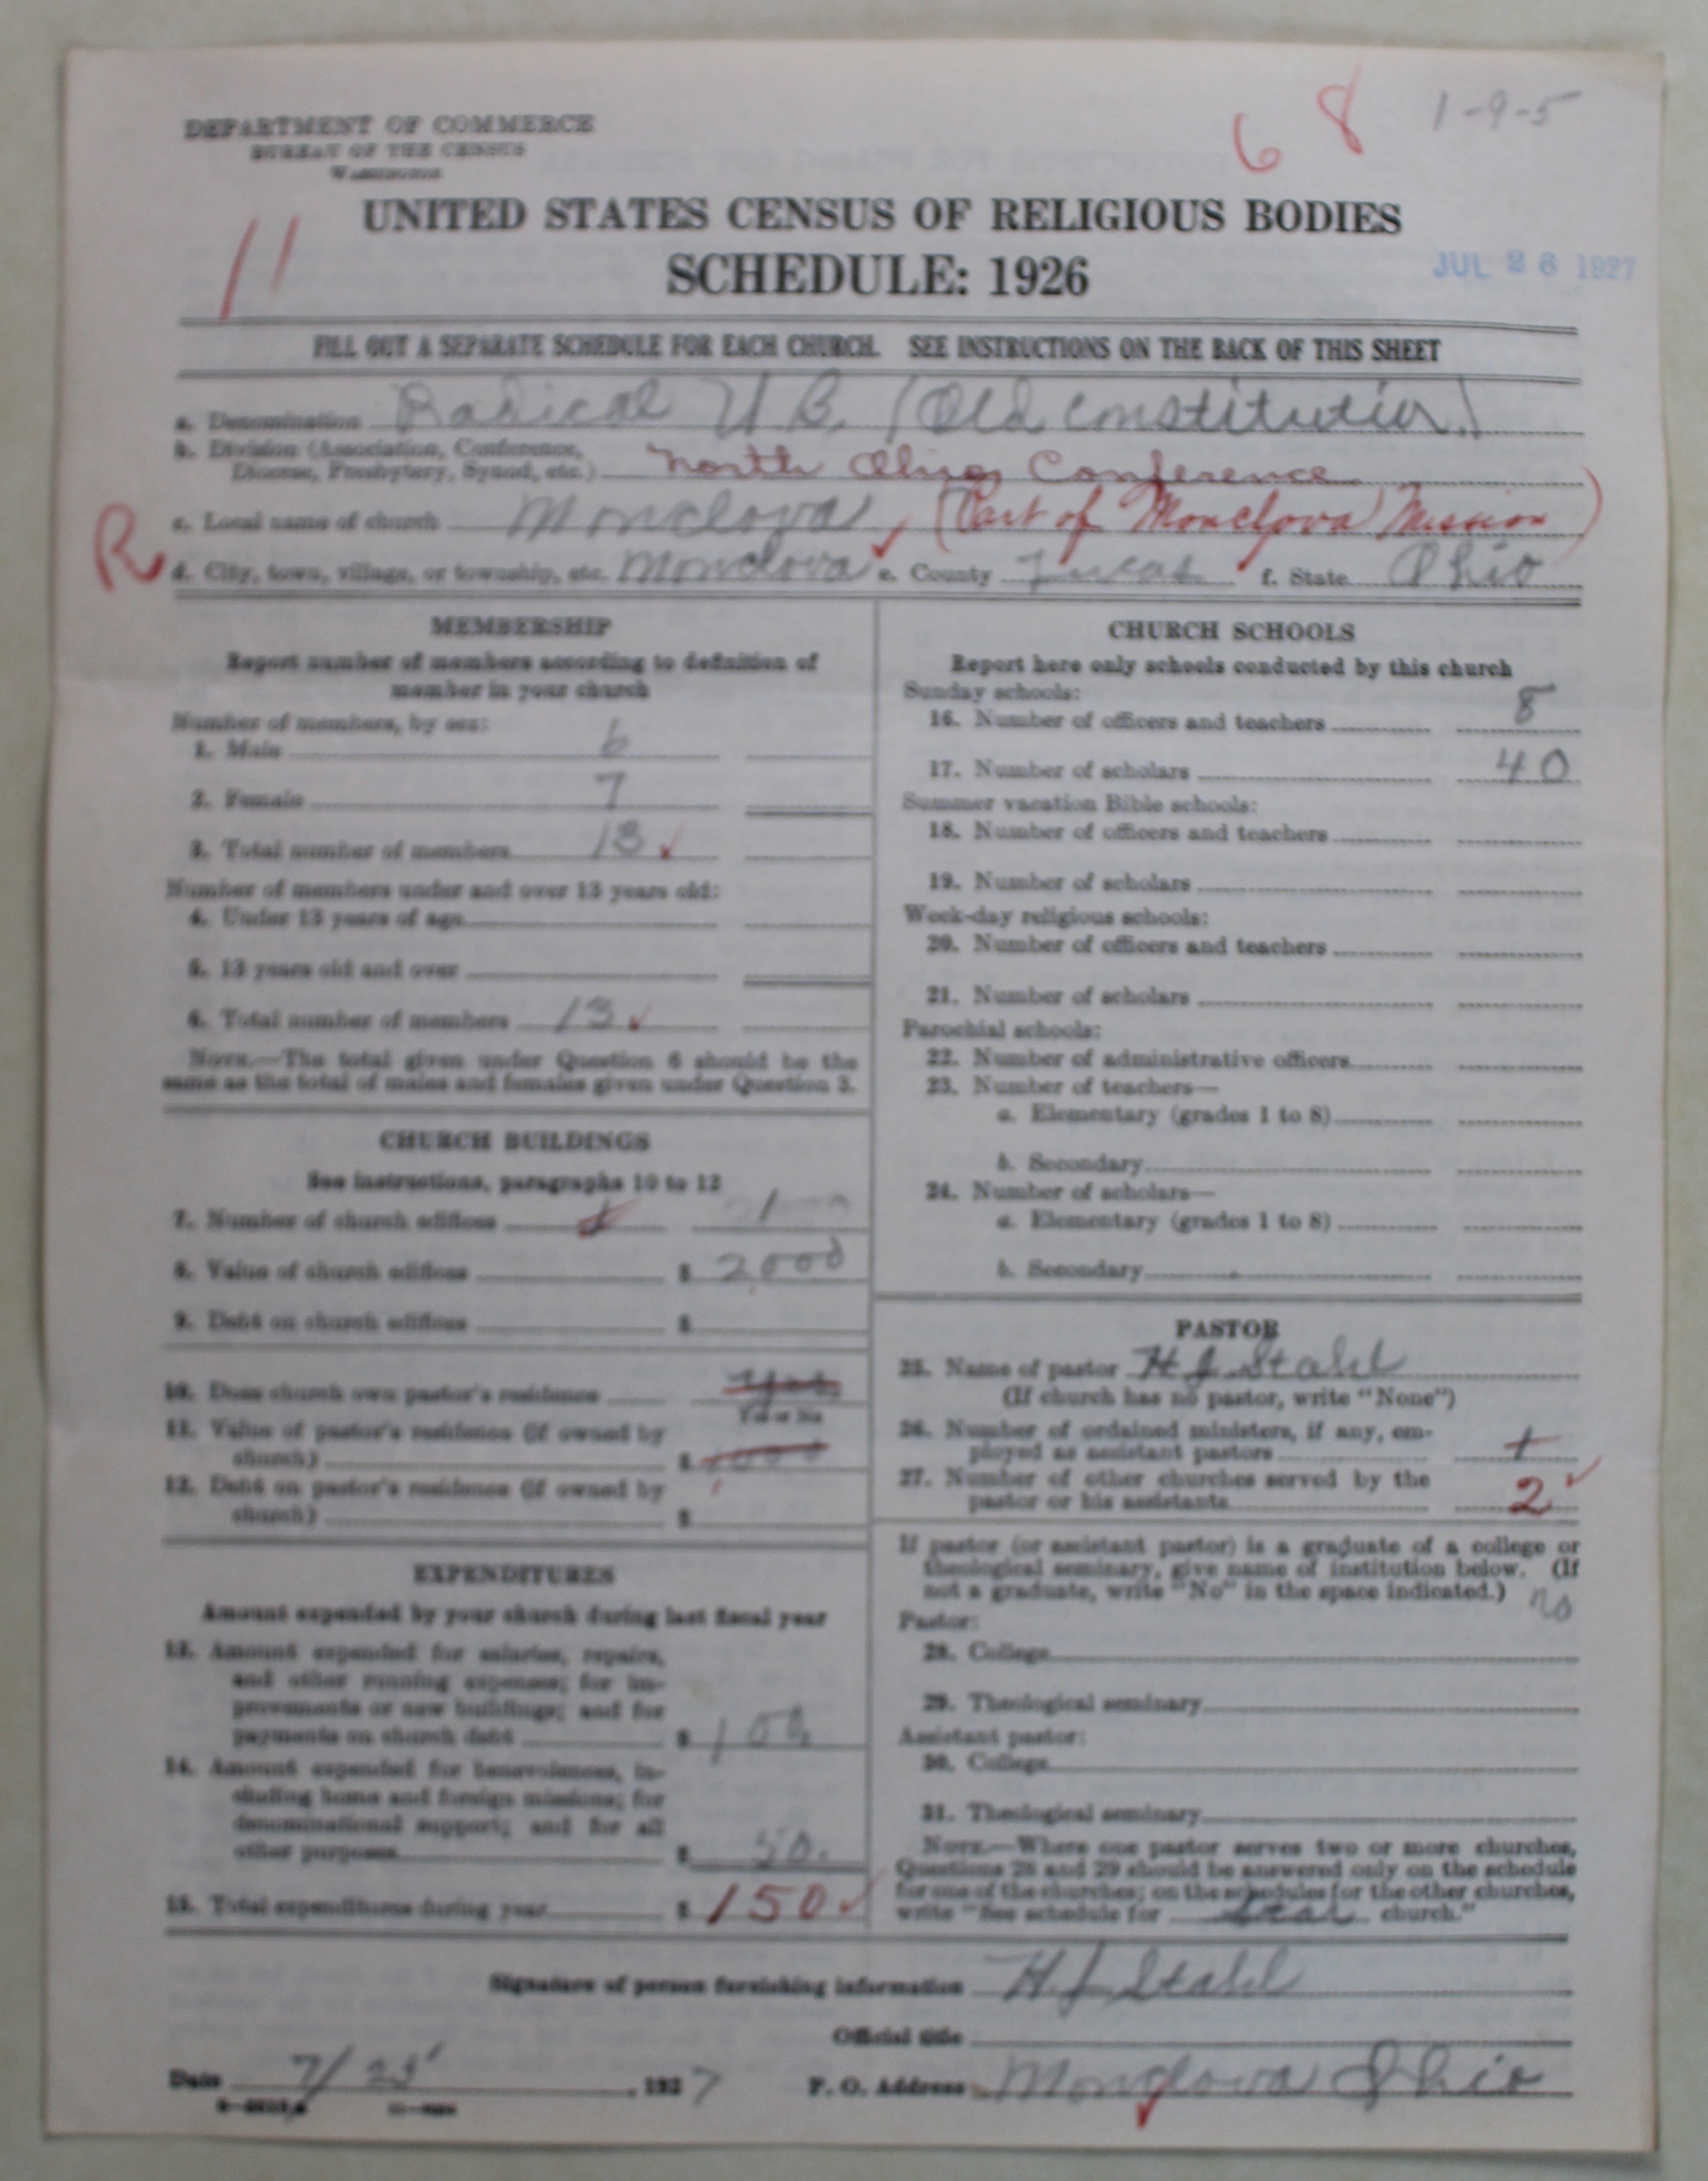 6 8 1-9-5
DEPARTMENT OF COMMERCE
BUREAU OF THE CENSUS
WASHINGTON
11
UNITED STATES CENSUS OF RELIGIOUS BODIES
SCHEDULE: 1926
JUL 26 1927
FILL OUT A SEPARATE SCHEDULE FOR EACH CHURCH. SEE INSTRUCTIONS ON THE BACK OF THIS SHEET
a. Denomination Radical U B. (Old Constitution)
b. Division (Association, Conference,
Diocese, Presbytery, Synod, etc.) North Ohio Conference
c. Local name of church Monclova (Part of Monclova Mission)
R
d. City, town, village, or township, etc. Monclova e. County Lucas f. State Ohio
MEMBERSHIP
Report number of members according to definition of
member in your church
Number of members, by sex:
1. Male 6
2. Female 7
3. Total number of members 13
Number of members under and over 13 years old:
4. Under 13 years of age
5. 13 years old and over
6. Total number of members 13
NOTE.—The total given under Question 6 should be the
same as the total of males and females given under Question 3.
CHURCH BUILDINGS
See instructions, paragraphs 10 to 12
7. Number of church edifices 1 1
8. Value of church edifices $ 2000
9. Debt on church edifices $
10. Does church own pastor's residence Yes
Yes or No
11. Value of pastor's residence (if owned by
church) $ 1000
12. Debt on pastor's residence (if owned by
church) $
EXPENDITURES
Amount expended by your church during last fiscal year
13. Amount expended for salaries, repairs,
and other running expenses; for im-
provements or new buildings; and for
payments on church debt $ 100
14. Amount expended for benevolences, in-
cluding home and foreign missions; for
denominational support; and for all
other purposes $ 50.
15. Total expenditures during year $ 150
CHURCH SCHOOLS
Report here only schools conducted by this church
Sunday schools:
16. Number of officers and teachers 8
17. Number of scholars 40
Summer vacation Bible schools:
18. Number of officers and teachers
19. Number of scholars
Week-day religious schools:
20. Number of officers and teachers
21. Number of scholars
Parochial schools:
22. Number of administrative officers
23. Number of teachers—
a. Elementary (grades 1 to 8)
b. Secondary
24. Number of scholars—
a. Elementary (grades 1 to 8)
b. Secondary
PASTOR
25. Name of pastor H J Stahl
(If church has no pastor, write "None")
26. Number of ordained ministers, if any, em-
ployed as assistant pastors 1
27. Number of other churches served by the
pastor or his assistants 2
If pastor (or assistant pastor) is a graduate of a college or
theological seminary, give name of institution below. (If
not a graduate, write "No" in the space indicated.) no
Pastor:
28. College
29. Theological seminary
Assistant pastor:
30. College
31. Theological seminary
NOTE.—Where one pastor serves two or more churches,
Questions 28 and 29 should be answered only on the schedule
for one of the churches; on the schedules for the other churches,
write "See schedule for church."
Signature of person furnishing information H. J Stahl
Official title
Date 7/25 , 1927 P. O. Address Monclova Ohio